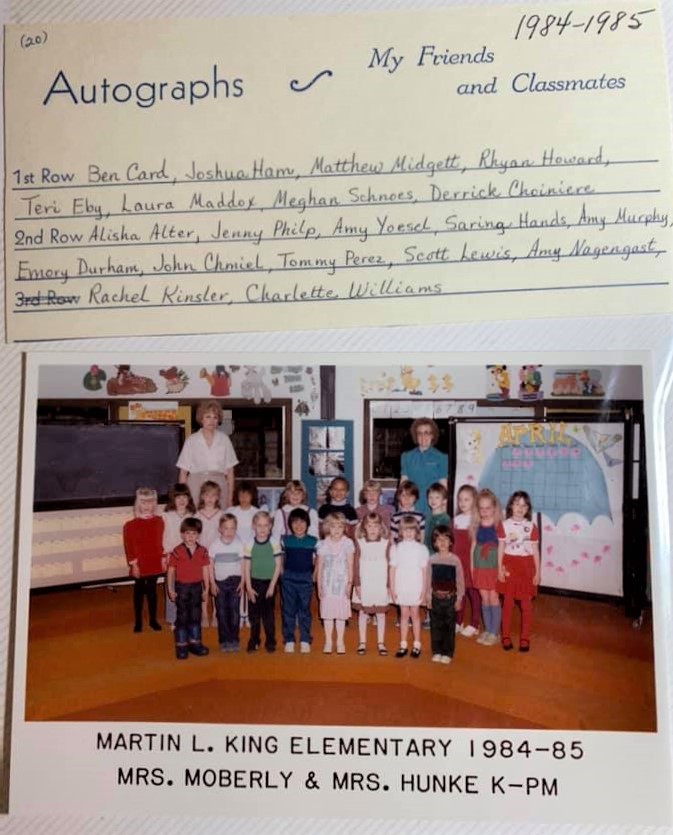 (20)
1984-1985
Autographs
My Friends
and Classmates
1st Row Ben Card, Joshua Ham, Matthew Midgett, Rhyan Howard,
Teri Eby, Laura Maddox, Meghan Schnoes, Derrick Choiniere
2nd Row Alisha Alter, Jenny Philp, Amy Yoesel, Saring Hands, Amy Murphy,
Emory Durham, John Chmiel, Tommy Perez, Scott Lewis, Amy Nagengast,
3rd Row Rachel Kinsler, Charlette Williams
APRIL
MARTIN L. KING ELEMENTARY 1984-85
MRS. MOBERLY & MRS. HUNKE K-PM